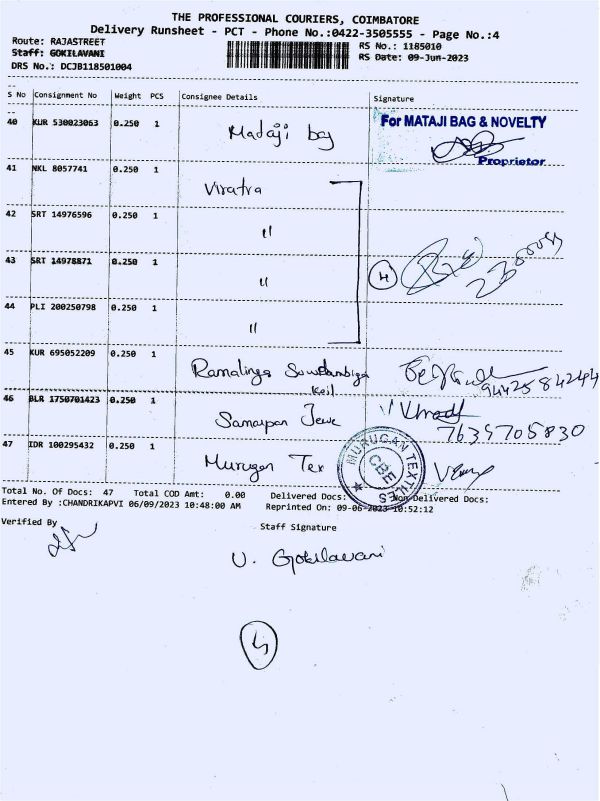 THE PROFESSIONAL COURIERS, COIMBATORE
Delivery Runsheet - PCT - Phone No.:0422-3505555 - Page No.:4
Route: RAJASTREET RS No.: 1185010
Staff: GOKILAVANI RS Date: 09-Jun-2023
DRS No.: DCJB118501004
S No Consignment No Weight PCS Consignee Details Signature
40 KUR 530023063 0.250 1 Mataji bag For MATAJI BAG & NOVELTY
Proprietor
41 NKL 8057741 0.250 1 Viratra
42 SRT 14976596 0.250 1 "
43 SRT 14978871 0.250 1 " 4
44 PLI 200250798 0.250 1 "
45 KUR 695052209 0.250 1 Ramalinga
Koil 9442584244
46 BLR 1750701423 0.250 1 Samarpan Jewe
7635705830
47 IDR 100295432 0.250 1 Murugan Tex MURUGAN TEXTILES CBE
Total No. Of Docs: 47 Total COD Amt: 0.00 Delivered Docs: Non Delivered Docs:
Entered By :CHANDRIKAPVI 06/09/2023 10:48:00 AM Reprinted On: 09-06-2023 10:52:12
Verified By Staff Signature
V. Gokilavani